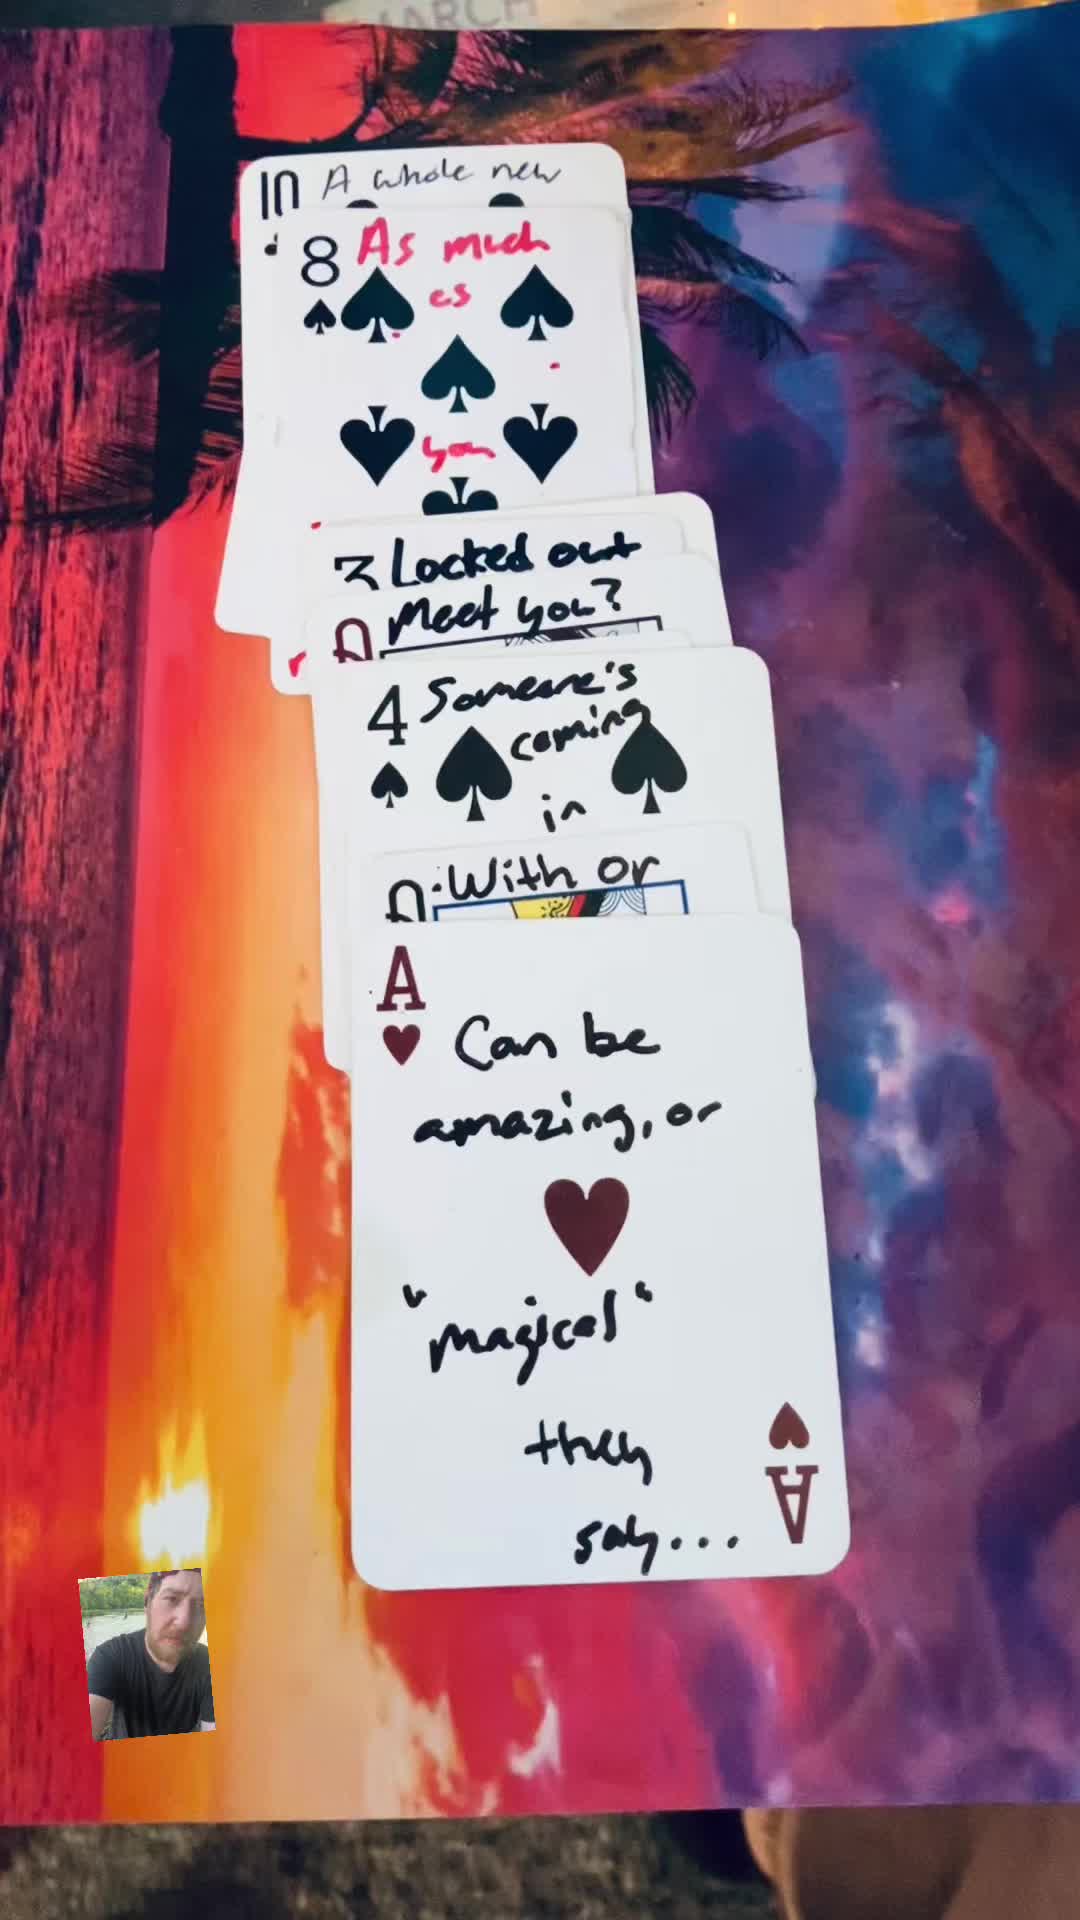 MARCH
10 A whole new
8 As much
as
you
3 Locked out
Q Meet you?
4 Someone's
coming
in
Q With or
A
Can be
amazing, or
"magical"
they
say...
A